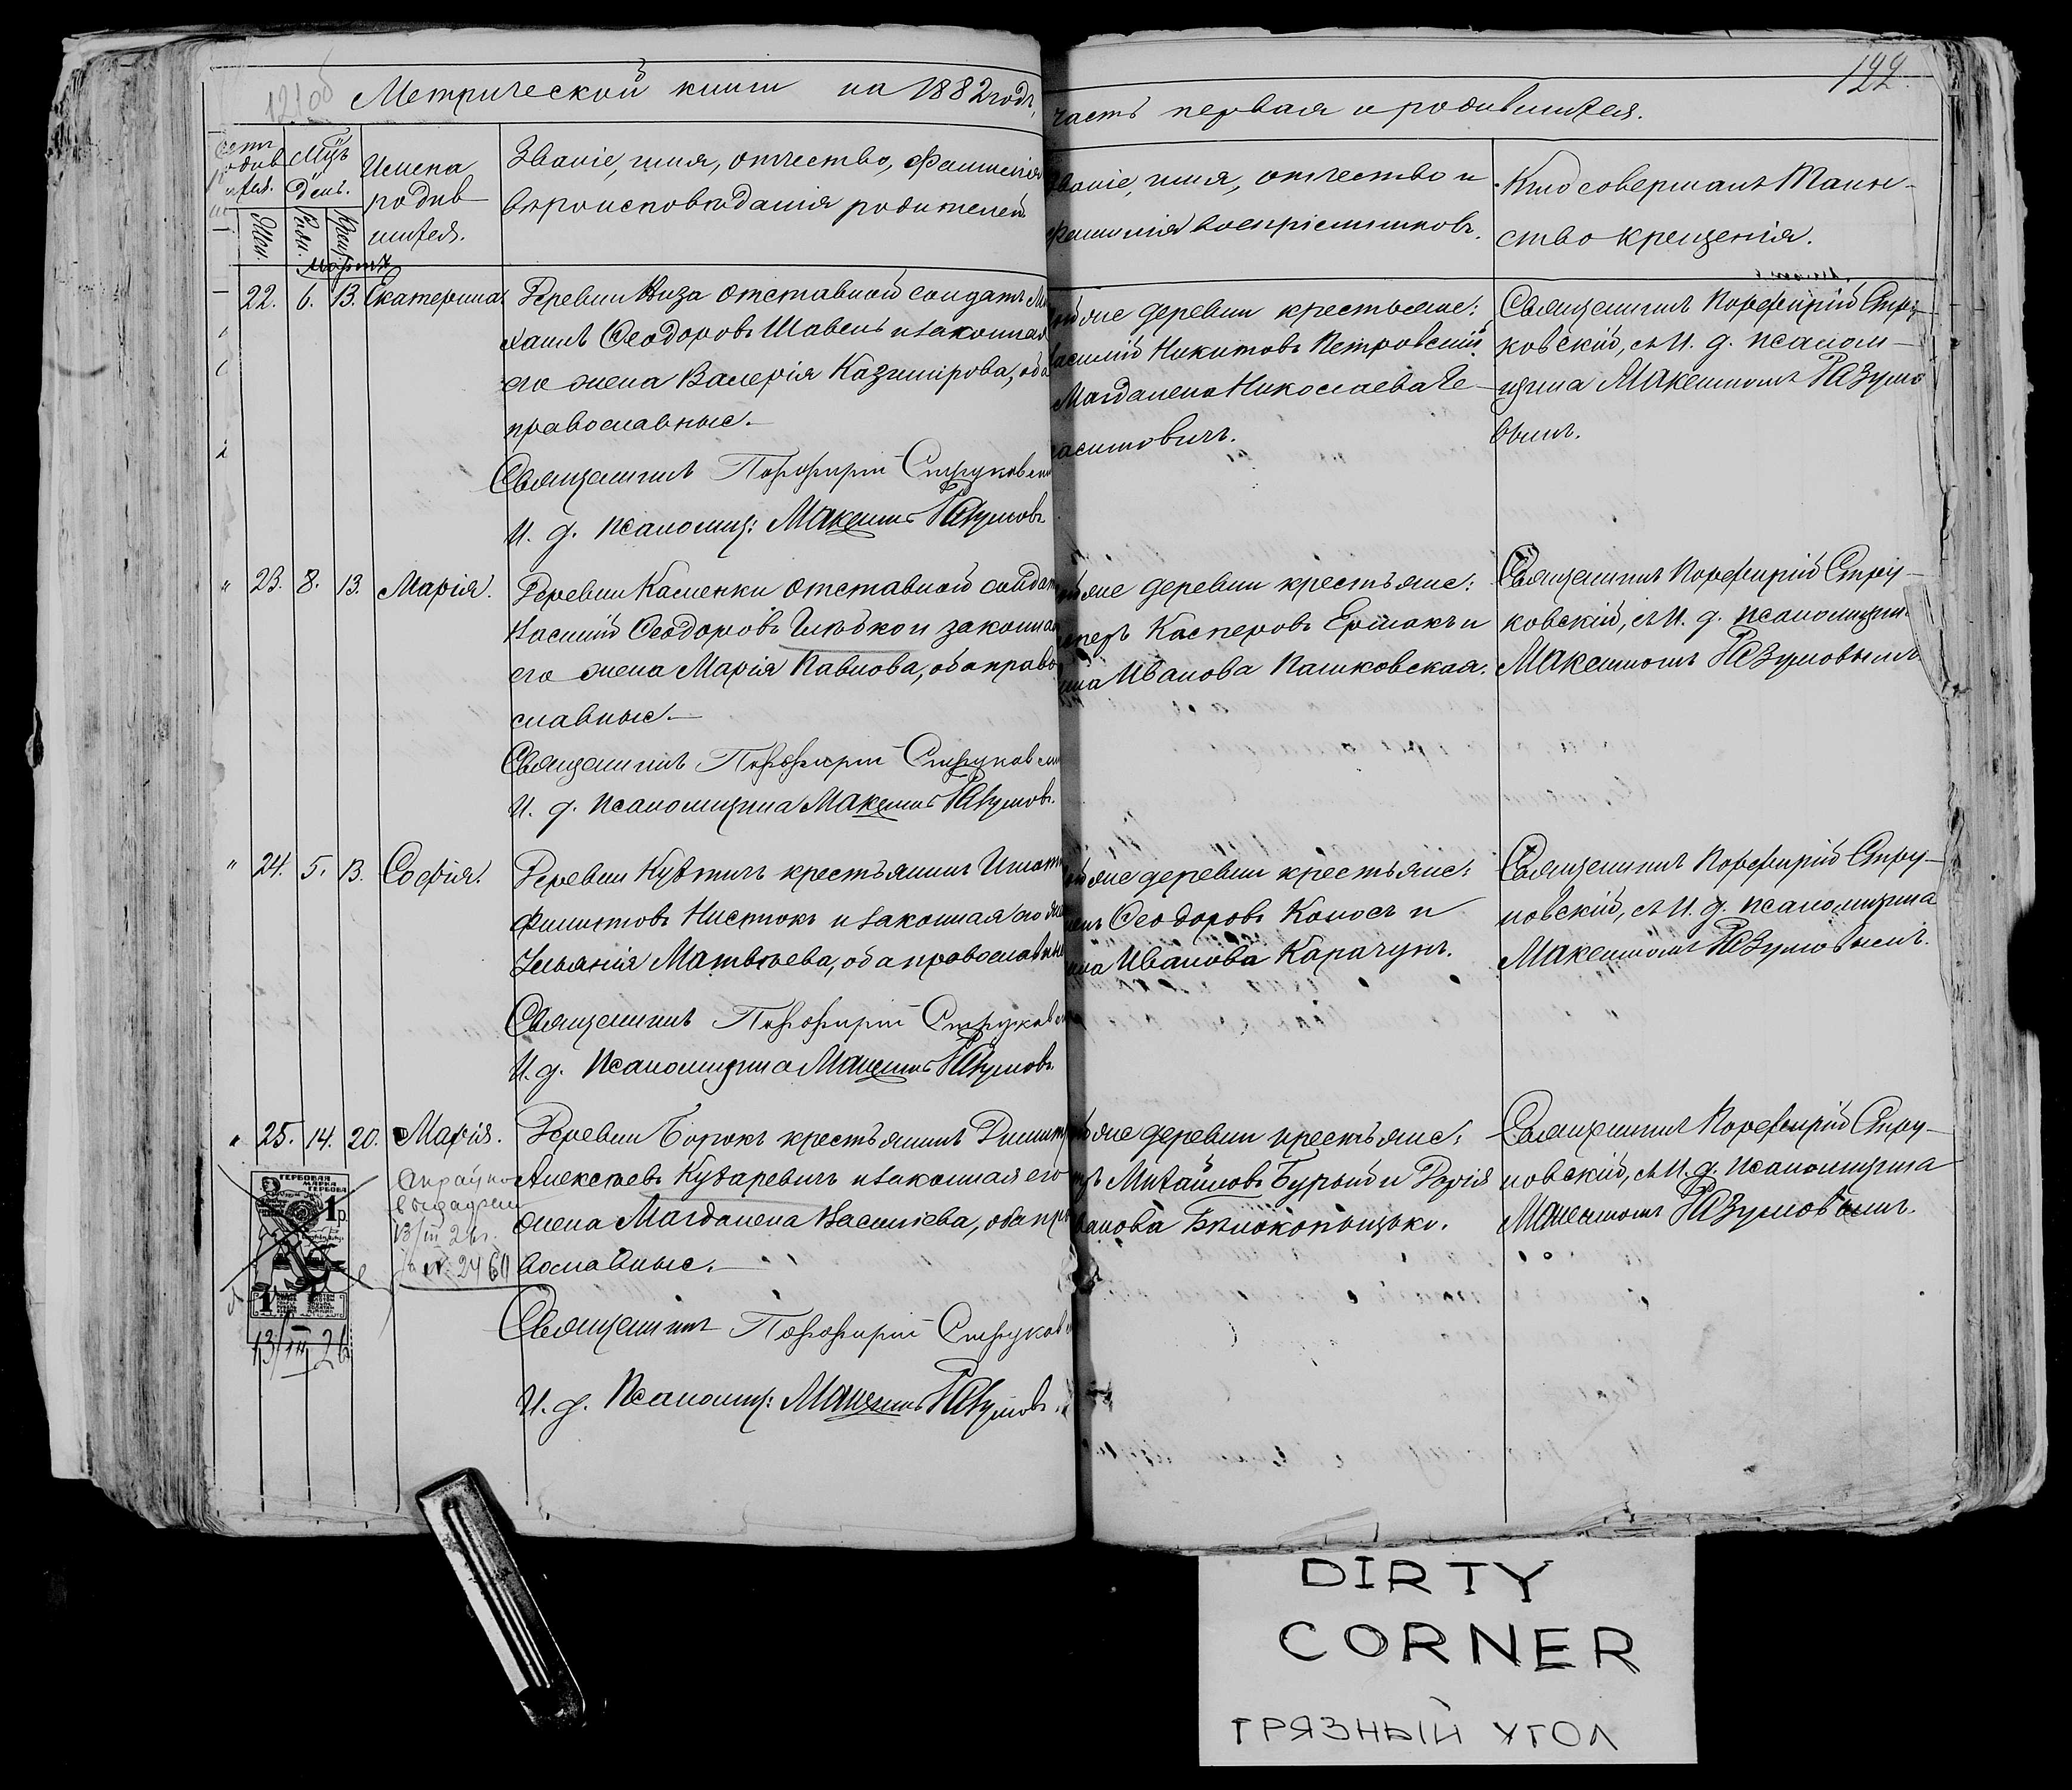 Метрической книги на 1882 годъ,
часть первая о родившихся.
122.
Мцъ
День.
Имена
родив
шихся.
Званіе, имя, отчество, фамилія
вѣроисповѣданія родителей
Званіе, имя, отчество и
фамилія воспріемниковъ.
Кто совершалъ Таин-
ство крещенія.
Мартъ
22. 6. 13. Екатерина
Деревни Низа отставной солдатъ Ми
хаилъ Ѳеодоровъ Шавель и законная
его жена Валерія Казимірова, оба
православные.
Священникъ Порфирій Струковскій
И. д. псаломщ: Максимъ Разумовъ
той же деревни крестьяне:
Василій Никитовъ Петровскій
Магдалена Николаева Ге-
расимовичъ.
Священникъ Порфирій Стру-
ковскій, съ И. д. псалом-
щика Максимомъ Разумо
вымъ.
" 23. 8. 13. Марія.
Деревни Каменки отставной солдатъ
Василій Ѳеодоровъ Глѣбко и законная
его жена Марія Павлова, оба право
славные.
Священникъ Порфирій Струковскій
И. д. псаломщика Максимъ Разумовъ.
той же деревни крестьяне:
Касперовъ Ермакъ и
Иванова Пашковская.
Священникъ Порфирій Стру-
ковскій, съ И. д. псаломщика
Максимомъ Разумовымъ.
" 24. 5. 13. Софія.
Деревни крестьянинъ Игнатій
Филиповъ Нистюкъ и законная его жена
Ульянія Матвѣева, оба православные
Священникъ Порфирій Струковскій
И. д. Псаломщика Максимъ Разумовъ.
той же деревни крестьяне:
Ѳеодоровъ Колосъ и
Иванова Карачунъ.
Священникъ Порфирій Стру-
ковскій, съ И. д. псаломщика
Максимомъ Разумовымъ.
" 25. 14. 20. Марія.
Деревни Борокъ крестьянинъ Димитрій
Алексѣевъ Кухаревичъ и законная его
жена Магдалена Васильева, оба пра
вославные.
Священникъ Порфирій Струковскій
И. д. Псаломщ: Максимъ Разумовъ.
той же деревни крестьяне:
Михаиловъ Бурый и Дарія
Иванова Бѣлокопыцько.
Священникъ Порфирій Стру-
ковскій, съ И. д. Псаломщика
Максимомъ Разумовымъ.
13/III 26г.
№ 2460
ГЕРБОВАЯ
МАРКА
1р.
13/III 26
DIRTY
CORNER
ГРЯЗНЫЙ УГОЛ